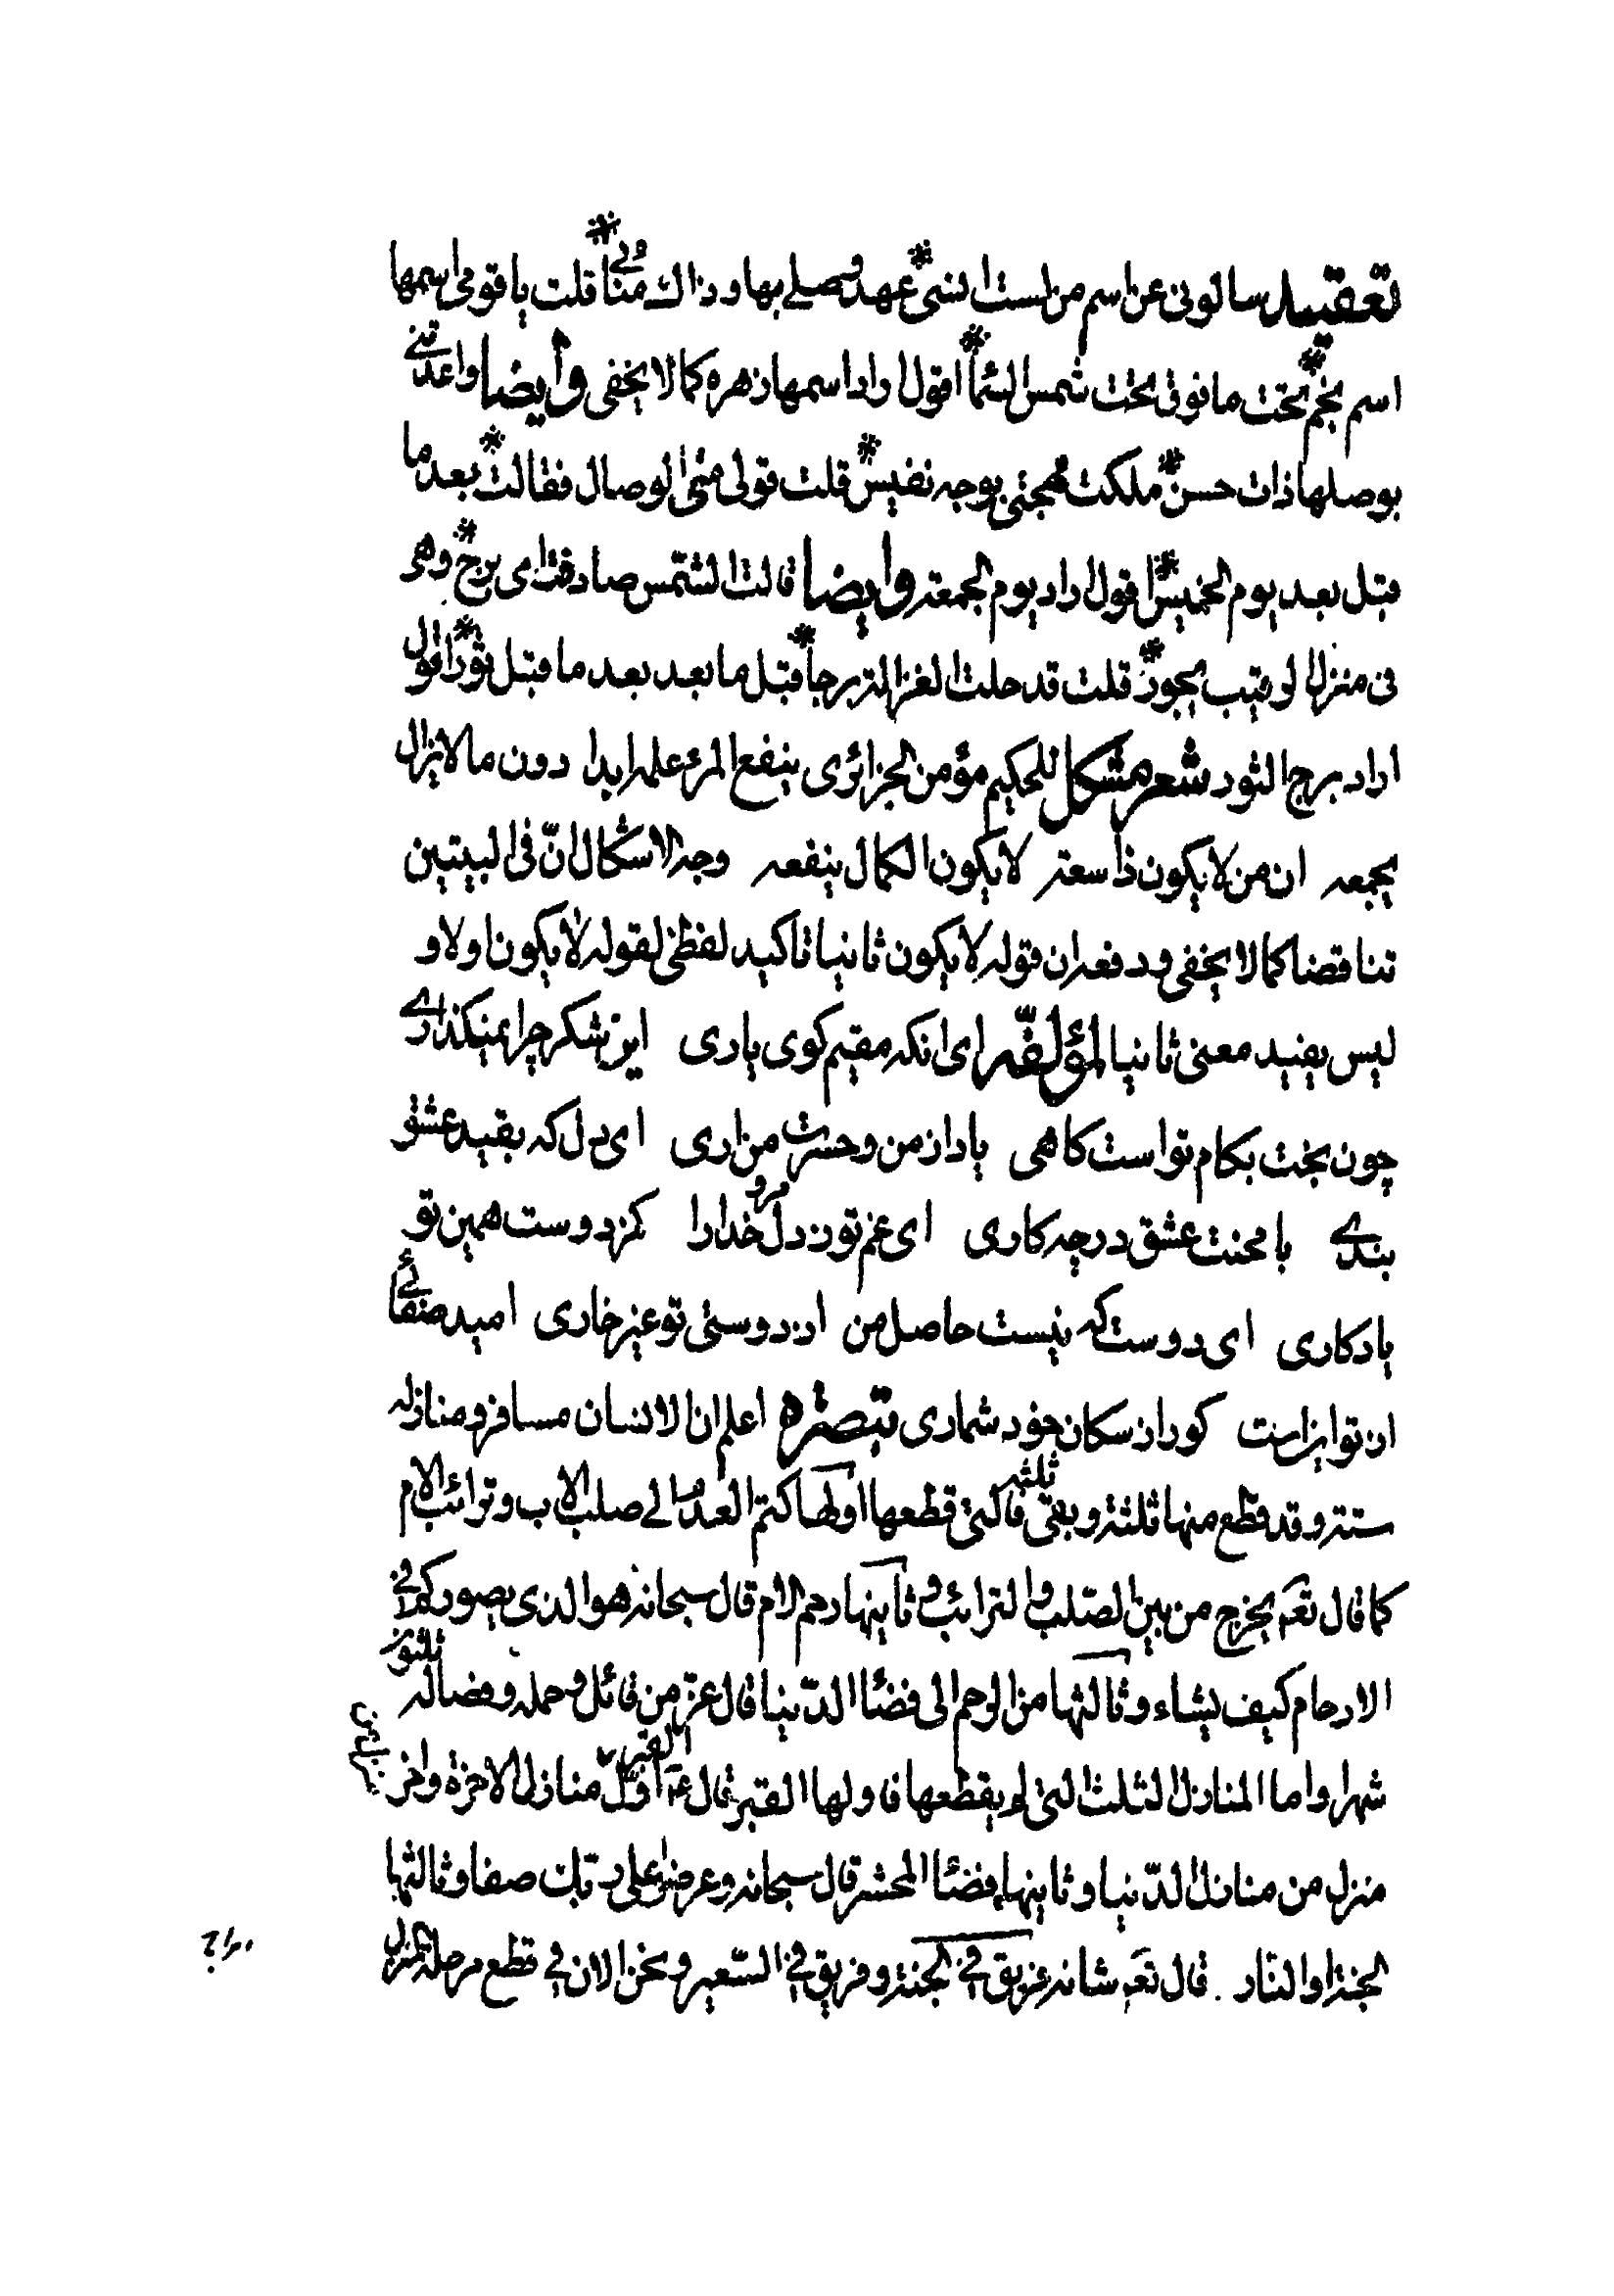 تعقيد سالونى عن اسم من لست انسى عهد وصلى بها وذاك منائى قلت يا قومى اسمها
اسم نجم تحت ما فوق تحت شمس السماء اقول اراد اسمها زهره كما لا يخفى وايضا واعدتنى
بوصلها ذات حسن ملكت مهجتى بوجه نفيس قلت قولى متى الوصال فقالت بعد ما
قبل بعد يوم الخميس اقول اراد يوم الجمعة وايضا قالت الشمس صادفت اى برج وهى
فى منزل الوقيب بجوز قلت قد حلت الغزالة برجا قبل ما بعد بعد ما قبل ثور اقول
اراد برج الثور شعر مشكل للحكيم مؤمن الجزائرى ينفع المرء علمه ابدا دون ما لا يزال
يجمعه ان من لا يكون ذا سعة لا يكون الكمال ينفعه وجه الاشكال ان فى البيتين
تناقضا كما لا يخفى ودفعه ان قوله لا يكون ثانيا تاكيد لفظى لقوله لا يكون اولا و
ليس يفيد معنى ثانيا لمؤلفه اى انكه مقيم كوى يارى اين شكر چرا نميكذارى
چون بخت بكام تو است كاهى ياد از من و حسرت من ارى اى دل كه بقيد عشق
بندى با محنت عشق در چه كارى اى غم تو ز دل مرو خدارا كز دوست همين تو
يادكارى اى دوست كه نيست حاصل من از دوستى تو غير خارى اميد صفائى
از تو اين است كورا از سكان خود شمارى تبصرة اعلم ان الانسان مسافر ومنازله
ستة وقد قطع منها ثلثة وبقى ثلثة فالتى قطعها اولها كتم العدم الى صلب الاب وترائب الام
كما قال تعه يخرج من بين الصلب والترائب وثانيها رحم الام قال سبحانه هو الذى يصوركم فى
الارحام كيف يشاء وثالثها من الرحم الى فضاء الدنيا قال عز من قائل وحمله وفصاله ثلثون
شهرا واما المنازل الثلث التى لم يقطعها فاولها القبر قال ع القبر اول منازل الاخرة واخر
منزل من منازل الدنيا وثانيها فضاء المحشر قال سبحانه وعرضوا على ربك صفا وثالثها
الجنة او النار . قال تعه شانه فريق فى الجنة وفريق فى السعير ونحن الان فى قطع مرحلة المنزل